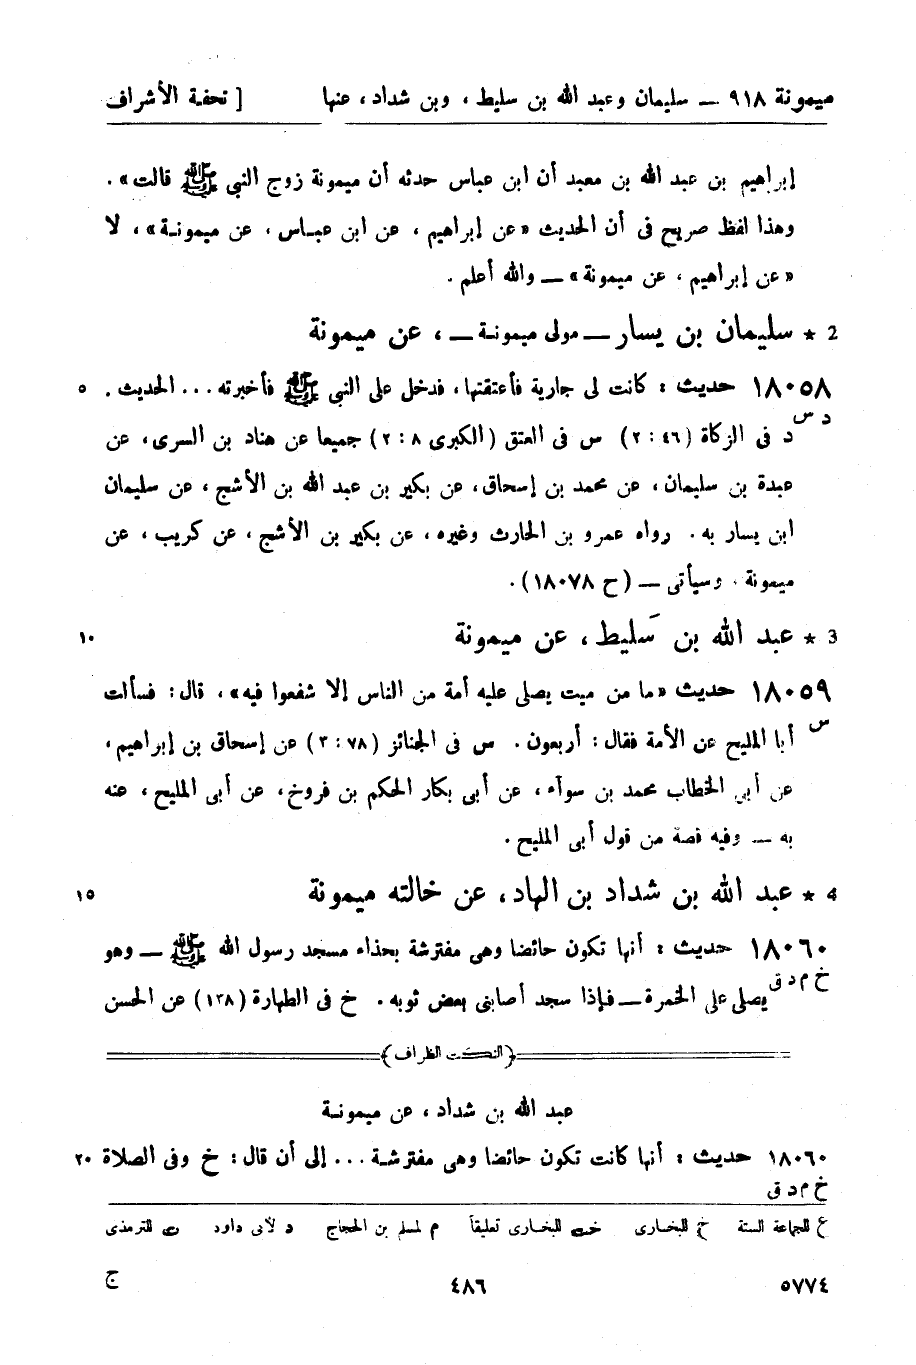 ميمونة ٩١٨ ــ سليمان وعبد الله بن سليط ، وبن شداد ، عنها [ تحفة الأشراف
إبراهيم بن عبد الله بن معبد أن ابن عباس حدثه أن ميمونة زوج النبي ﷺ قالت» .
وهذا لفظ صريح فى أن الحديث «عن إبراهيم ، عن ابن عبـاس ، عن ميمونـة» ، لا
«عن إبراهيم ، عن ميمونة» ــ والله أعلم .
2 * سليمان بن يسار ــ مولى ميمونـة ــ ، عن ميمونة
١٨٠٥٨ حديث : كانت لى جارية فأعتقتها، فدخل على النبي ﷺ فأخبرته ... الحديث . ٥
د س
د فى الزكاة (٤٦ : ٢) س فى العتق (الكبرى ٨ : ٢) جميعا عن هناد بن السرى، عن
عبدة بن سليمان ، عن محمد بن إسحاق، عن بكير بن عبد الله بن الأشج ، عن سليمان
ابن يسار به . رواه عمرو بن الحارث وغيره ، عن بكير بن الأشج ، عن كريب ، عن
ميمونة . وسيأتى ــ (ح ١٨٠٧٨) .
3 * عبد الله بن سَليط ، عن ميمونة ١٠
١٨٠٥٩ حديث «ما من ميت يصلى عليه أمة من الناس إلا شفعوا فيه» ، قال : فسألت
س
أبا المليح عن الأمة فقال : أربعون . س فى الجنائز (٧٨ : ٣) عن إسحاق بن إبراهيم ،
عن أبى الخطاب محمد بن سوآء ، عن أبى بكار الحكم بن فروخ، عن أبى المليح ، عنه
به ــ وفيه قصة من قول أبى المليح .
4 * عبد الله بن شداد بن الهاد ، عن خالته ميمونة ١٥
١٨٠٦٠ حديث : أنها تكون حائضا وهى مفترشة بحذاء مسجد رسول الله ﷺ ــ وهو
خ م د ق
يصلى على الخمرة ــ فإذا سجد أصابنى بعض ثوبه . خ فى الطهارة (١٣٨) عن الحسن
(النكت الظراف)
عبد الله بن شداد ، عن ميمونـة
١٨٠٦٠ حديث : أنها كانت تكون حائضا وهى مفترشـة ... إلى أن قال : خ وفى الصلاة ٢٠
خ م د ق
ع للجماعة الستة خ للبخارى خت للبخارى تعليقاً م لمسلم بن الحجاج د لأبى داود ت للترمذى
٥٧٧٤ ٤٨٦ ج